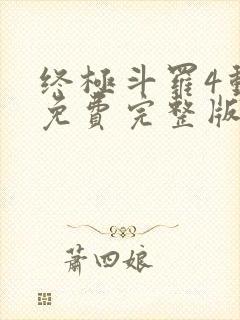 终極斗羅4
免費完整版
蕭四娘